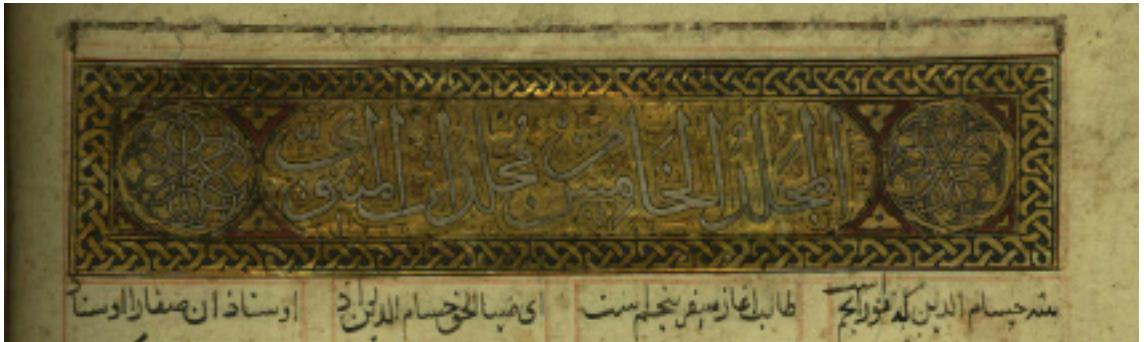 المجلد الخامس من مجلدات المثنوي
شه حسام الدین که نور انجم است طالب آغاز سفر پنجم است ای ضیا الحق حسام الدین راد اوستاذان صفا را اوستاد